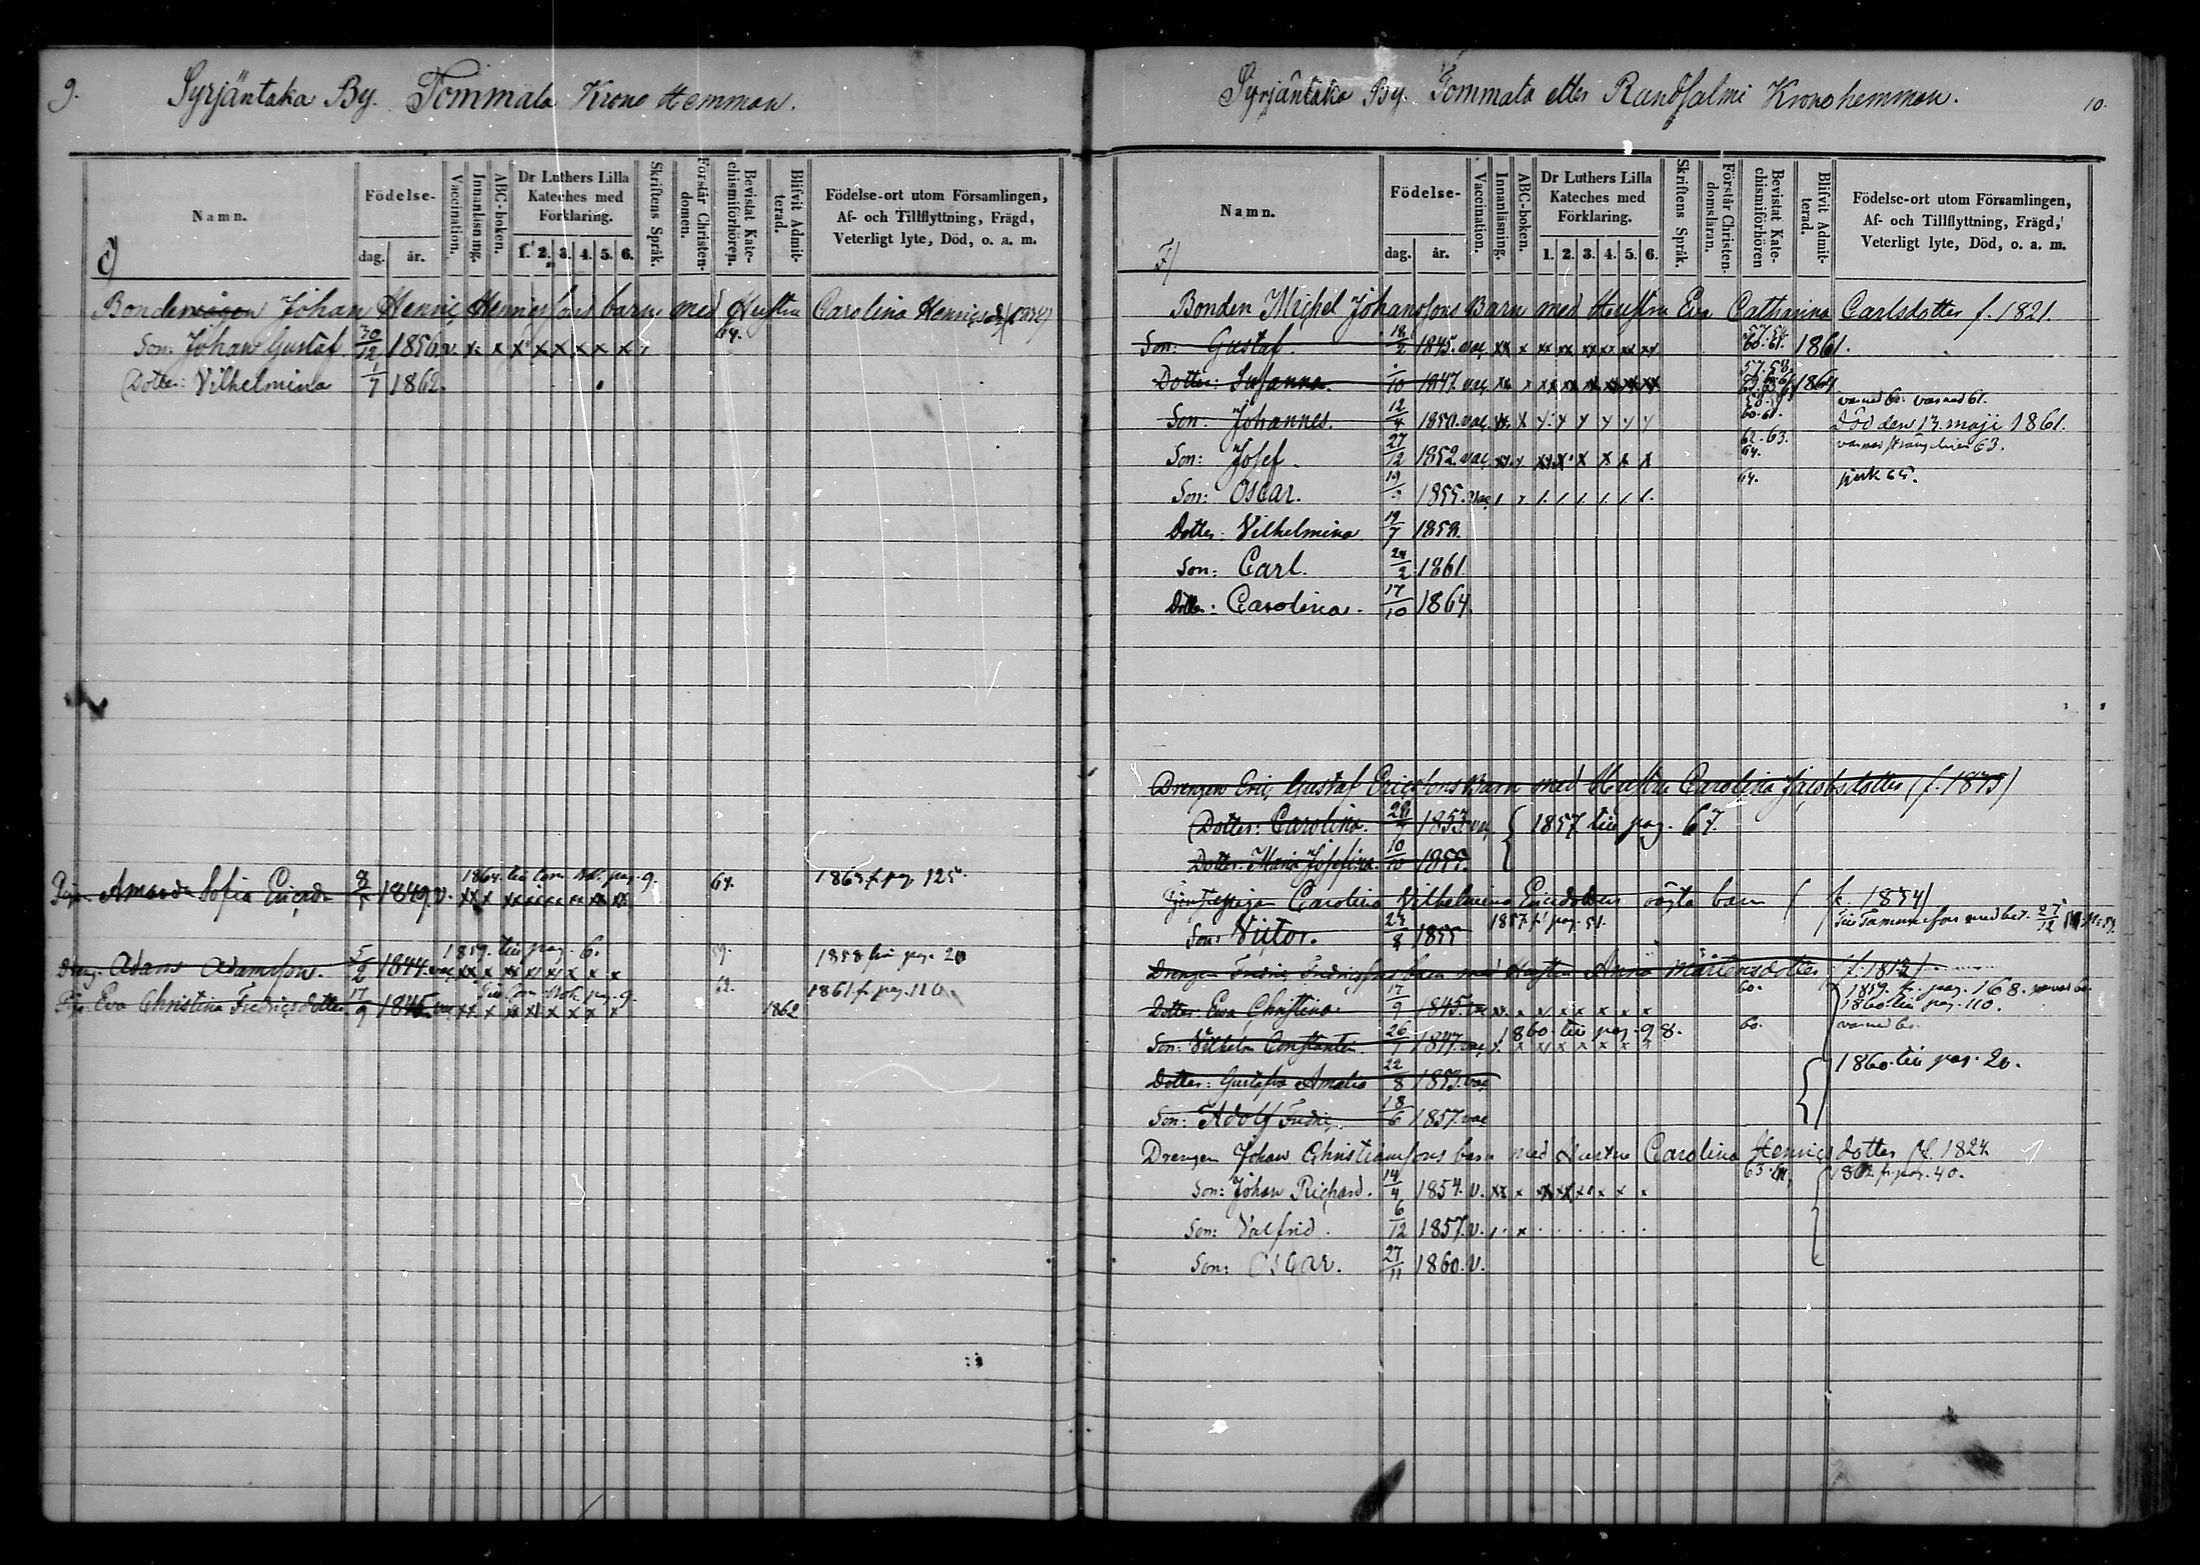 9.
Syrjäntaka By. Tommala Krono Hemman.
Namn.
Födelse-
dag.
år.
Vaccination.
Innanläsning.
ABC-boken.
Dr Luthers Lilla Kateches med Förklaring.
1. 2. 3. 4. 5. 6.
Skriftens Språk.
Förstår Christendomen.
Bevistat Katechismiförhören.
Blifvit Admitterad.
Födelse-ort utom Församlingen,
Af- och Tillflyttning, Frägd,
Veterligt lyte, Död, o. a. m.
Johan Henriç Henriçsons barn med Hustru Carolina
Son: Johan Gustaf 30/12 1856 v. x x x x x x x x 64.
Dotter: Vilhelmina 1/7 1862.
Amanda Sofia 1849 v. 64. pag. 125
1864 pag. 9.
Adam Adamsson. 5/2 1844. vac 1859. till pag. 6. 59. 1858 från pag. 20
Eva Christina Fredriçsdotter 17/9 1845. vac 62. 1862 1861 f. pag. 110
Syrjäntaka By. Tommala eller Krono hemman.
10.
Namn.
Födelse-
dag.
år.
Vaccination.
Innanläsning.
ABC-boken.
Dr Luthers Lilla Kateches med Förklaring.
1. 2. 3. 4. 5. 6.
Skriftens Språk.
Förstår Christendomsläran.
Bevistat Katechismiförhören
Blifvit Admitterad.
Födelse-ort utom Församlingen,
Af- och Tillflyttning, Frägd,
Veterligt lyte, Död, o. a. m.
F/
Bonden Miçhel Johanssons Barn med Hustru Eva Catharina Carlsdotter f. 1821.
Son: Gustaf. 18/2 1845. vac 60. 61. 1861.
Dotter: Susanna 1847. vac 57. 58. 1864
Son: Johannes. 12/4 1850. vac. 60. 61. Död den 13 maji 1861.
Son: Josef. 27/12 1852. vac 62. 63. 64.
Son: Oscar. 1855. vac 64. sjuk 65.
Dotter: Vilhelmina 19/7 1858.
Son: Carl. 24/2 1861
Dotter: Carolina. 17/10 1864.
Drengen Eriç Gustaf Ericsons Barn med Hustru Carolina Jacobsdotter
Dotter: Carolina. 1853. vac 1857 till pag. 67.
Dotter: Maria Josefina. 10/10 1855.
Carolina Vilhelmina Ericsdotters oägta barn (f. 1834)
Son: Victor. 1855 1857 f. pag. 51.
Drengen Fredriç Fredriçsons barn med Hustru Anna Mårtensdotter
Dotter: Eva Christina 17/9 1845. 60. 1859. fr. pag. 168.
1860 till pag. 110.
Son: Vilhelm Constantin. 1847. vac 1860 till pag. 98. 60.
Dotter: Gustafva Amalia 22/8 1853. vac 1860. till pag. 20.
Son: Adolf Fredriç. 18/6 1857. vac
Drengen Johan Christianssons barn med Hustru Carolina Henriçsdotter f. 1824.
Son: Johan Riçhard. 14/4 1854. v. fr. pag. 40.
Son: Valfrid. 6/12 1857. v.
Son: Oscar. 27/11 1860. v.